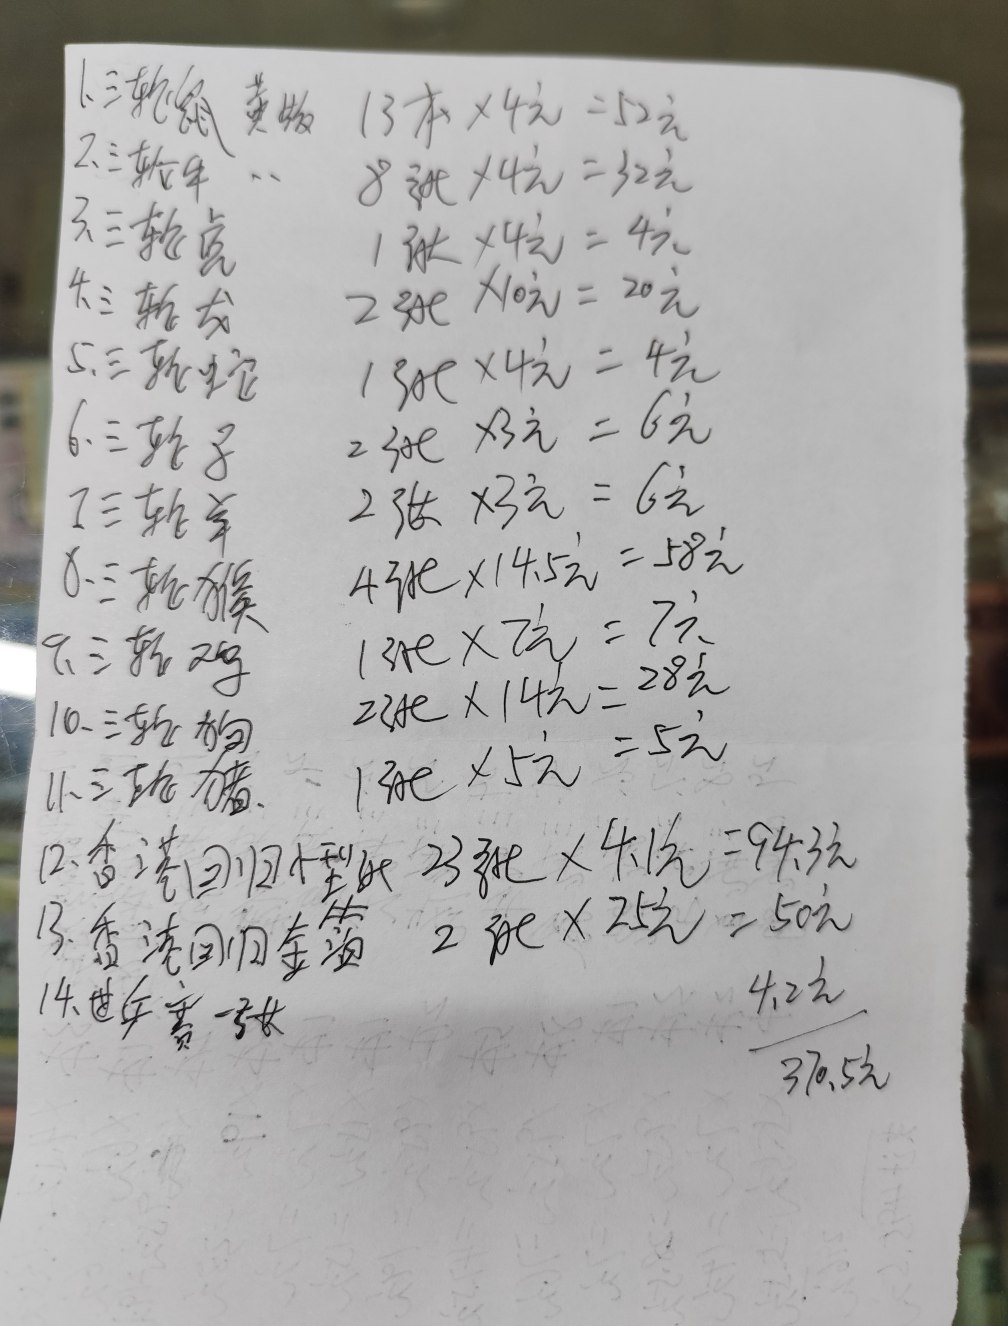 1、三轮鼠 黄版 13本×4元=52元
2、三轮牛 〃 8张×4元=32元
3、三轮兔 1张×4元=4元
4、三轮龙 2张×10元=20元
5、三轮蛇 1张×4元=4元
6、三轮 2张×3元=6元
7 三轮羊 2张×3元=6元
8、三轮猴 4张×14.5元=58元
9、三轮鸡 1张×7元=7元
10、三轮狗 2张×14元=28元
11、三轮猪、 1张×5元=5元
12、香港回归小型张 23张×4.1元=94.3元
13、香港回归金箔 2张×25元=50元
14、一张 4.2元
370.5元